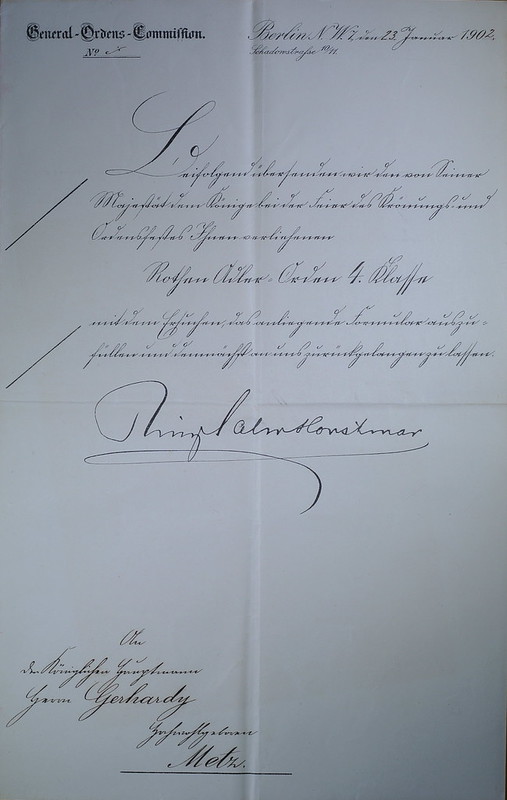 General-Ordens-Commission.
Berlin N.W. 7, den 23. Januar 1902.
No
Schadowstraße 10/11.
Beifolgend übersenden wir den von Seiner
Majestät dem Könige bei der Feier des Krönungs- und
Ordensfestes Ihnen verliehenen
Rothen Adler-Orden 4. Klasse
mit dem Ersuchen, das anliegende Formular auszu-
füllen und demnächst an uns zurückgelangen zu lassen.
Salm Horstmar
An
den Königlichen Hauptmann
Herrn Gerhardy
Hochwohlgeboren
Metz.